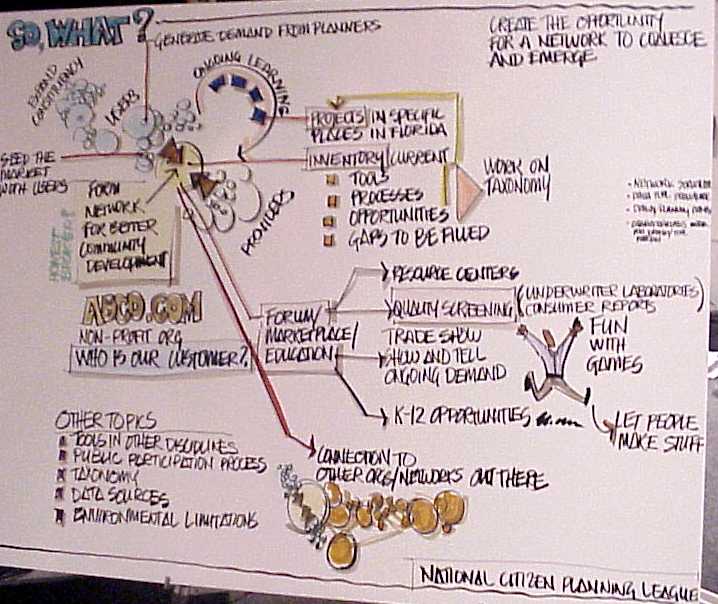 SO, WHAT?
GENERATE DEMAND FROM PLANNERS
CREATE THE OPPORTUNITY
FOR A NETWORK TO COALESCE
AND EMERGE
EXPAND
CONSTITUENCY
USERS
ONGOING LEARNING
SEED THE
MARKET
WITH USERS
PROJECTS/IN SPECIFIC
PLACES IN FLORIDA
INVENTORY/CURRENT
TOOLS
PROCESSES
OPPORTUNITIES
GAPS TO BE FILLED
WORK ON
TAXONOMY
PROVIDERS
FORM
NETWORK
FOR BETTER
COMMUNITY
DEVELOPMENT
HONEST
NON-PROFIT ORG
WHO IS OUR CUSTOMER?
FORUM/
MARKETPLACE/
EDUCATION
RESOURCE CENTERS
QUALITY SCREENING (UNDERWRITER LABORATORIES)
CONSUMER REPORTS
TRADE SHOW
SHOW AND TELL
ONGOING DEMAND
K-12 OPPORTUNITIES
FUN
WITH
GAMES
LET PEOPLE
MAKE STUFF
OTHER TOPICS
TOOLS IN OTHER DISCIPLINES
PUBLIC PARTICIPATION PROCESS
TAXONOMY
DATA SOURCES
ENVIRONMENTAL LIMITATIONS
CONNECTION TO
OTHER ORGS/NETWORKS OUT THERE
NATIONAL CITIZEN PLANNING LEAGUE